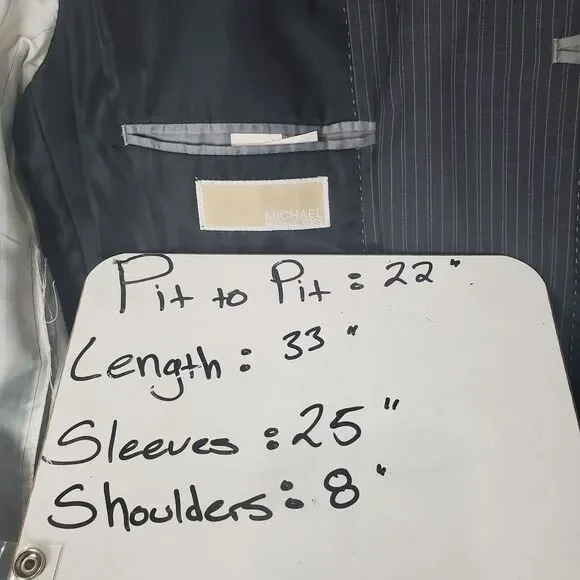 MICHAEL
MICHAEL KORS
Pit to Pit : 22"
Length : 33"
Sleeves : 25"
Shoulders : 8"